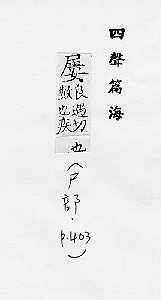 四聲篇海
屢
良遇切
數也疾
也
(尸部.
p.403)